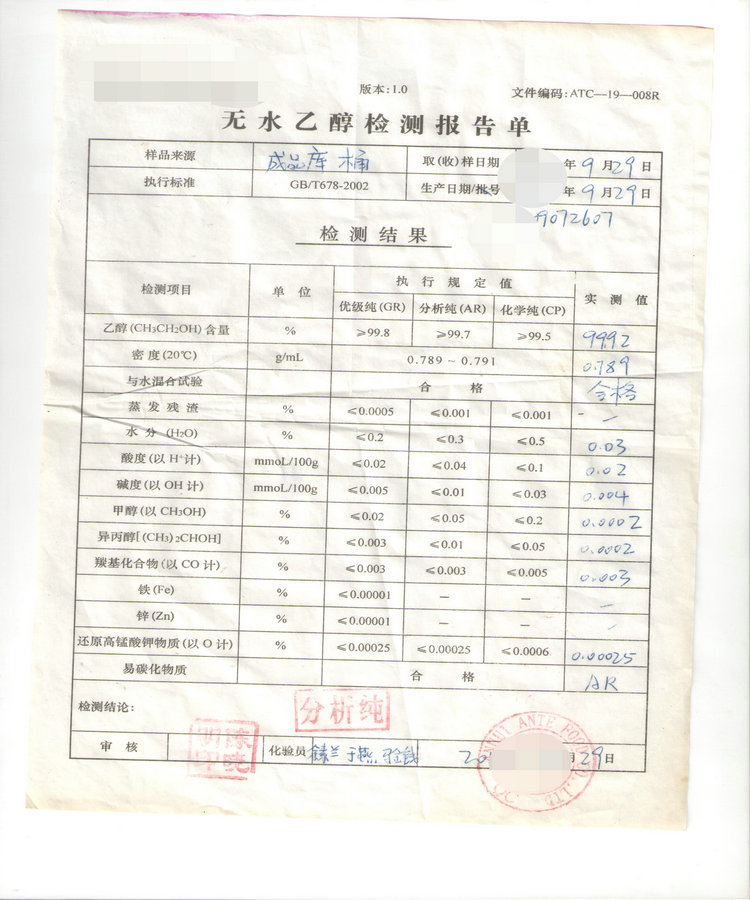 版本:1.0 文件编码:ATC—19—008R
无水乙醇检测报告单
样品来源 成品库 桶 取(收)样日期 年 9 月 29 日
执行标准 GB/T678-2002 生产日期/批号 年 9 月 29 日
9072607
检测结果
检测项目 单位 执行规定值 实测值
优级纯(GR) 分析纯(AR) 化学纯(CP)
乙醇(CH3CH2OH)含量 % ≥99.8 ≥99.7 ≥99.5 99.92
密度(20℃) g/mL 0.789~0.791 0.789
与水混合试验 合格 合格
蒸发残渣 % ≤0.0005 ≤0.001 ≤0.001 - —
水分(H2O) % ≤0.2 ≤0.3 ≤0.5 0.03
酸度(以H+计) mmoL/100g ≤0.02 ≤0.04 ≤0.1 0.02
碱度(以OH计) mmoL/100g ≤0.005 ≤0.01 ≤0.03 0.004
甲醇(以CH3OH) % ≤0.02 ≤0.05 ≤0.2 0.0002
异丙醇[(CH3)2CHOH] % ≤0.003 ≤0.01 ≤0.05 0.0002
羰基化合物(以CO计) % ≤0.003 ≤0.003 ≤0.005 0.003
铁(Fe) % ≤0.00001 — — —
锌(Zn) % ≤0.00001 — — —
还原高锰酸钾物质(以O计) % ≤0.00025 ≤0.00025 ≤0.0006 0.00025
易碳化物质 合格 AR
检测结论: 分析纯
审核 化验员 20 月 29 日